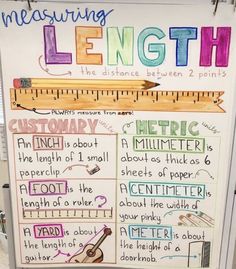 measuring
LENGTH
the distance between 2 points
ALWAYS measure from zero!
CUSTOMARY units
An INCH is about
the length of 1 small
paperclip
A FOOT is the
length of a ruler.
A YARD is about
the length of a
guitar.
METRIC units
A MILLIMETER is
about as thick as 6
sheets of paper.
A CENTIMETER is
about the width of
your pinky
A METER is about
the height of a
doorknob.